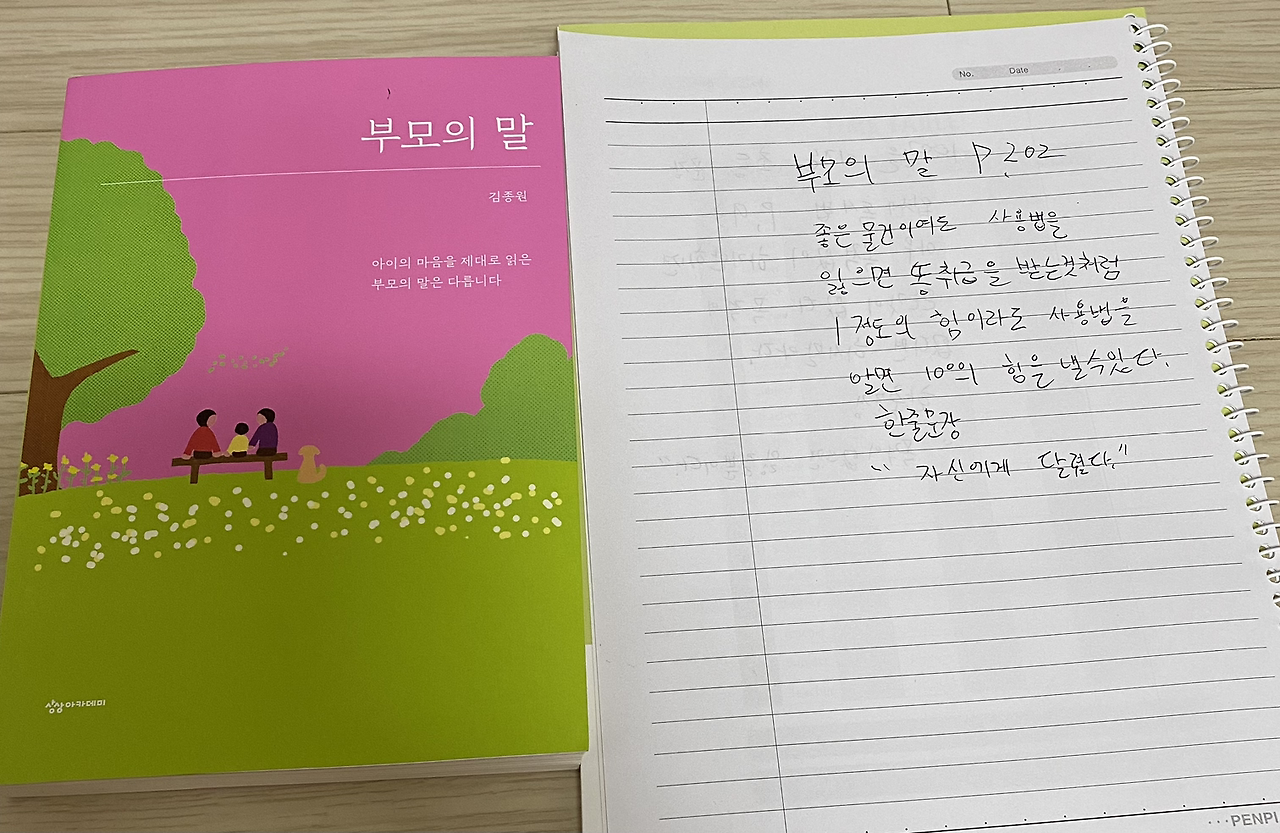 부모의 말
김종원
아이의 마음을 제대로 읽은
부모의 말은 다릅니다
상상아카데미
No. Date
부모의 말 P.202
좋은 물건이여도 사용법을
잃으면 똥취급을 받는것처럼
1정도의 힘이라도 사용법을
알면 100의 힘을 낼수있다.
한줄문장
"자신에게 달렸다."
...PENPI